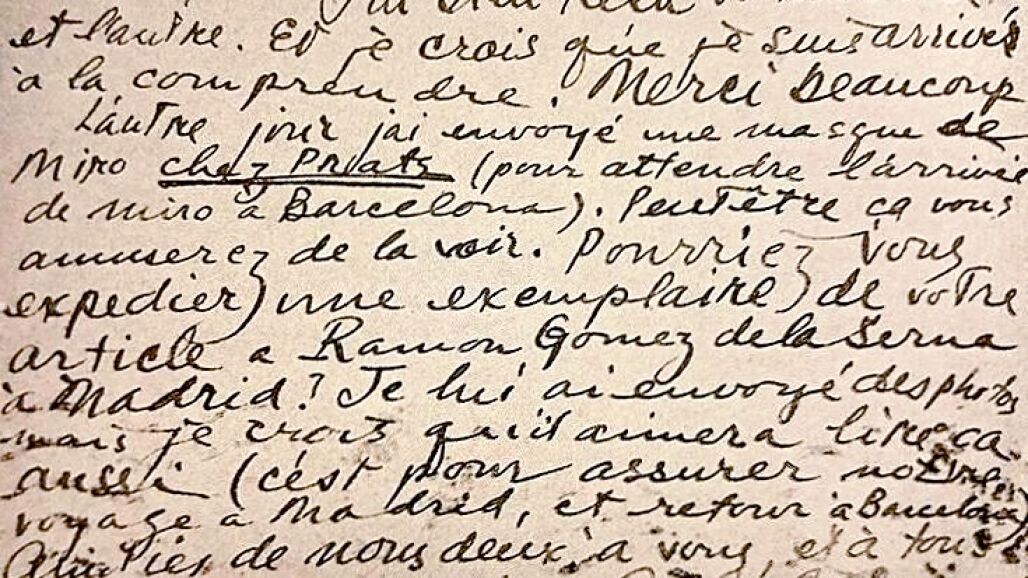 et l'autre. Et je crois que je suis arrivé
à la comprendre. Merci Beaucoup
L'autre jour j'ai envoyé une masque de
Miro chez Prats (pour attendre l'arrivée
de miro à Barcelona). Peutêtre ça vous
amuserez de la voir. Pourriez vous
expedier) une exemplaire) de votre
article a Ramon Gomez de la Serna
à Madrid? Je lui ai envoyé des photos
mais je crois qu'il aimera lire ça
aussi (c'est pour assurer notre
voyage à Madrid, et retour à Barcelona)
de nous deux, a vous, et à tous